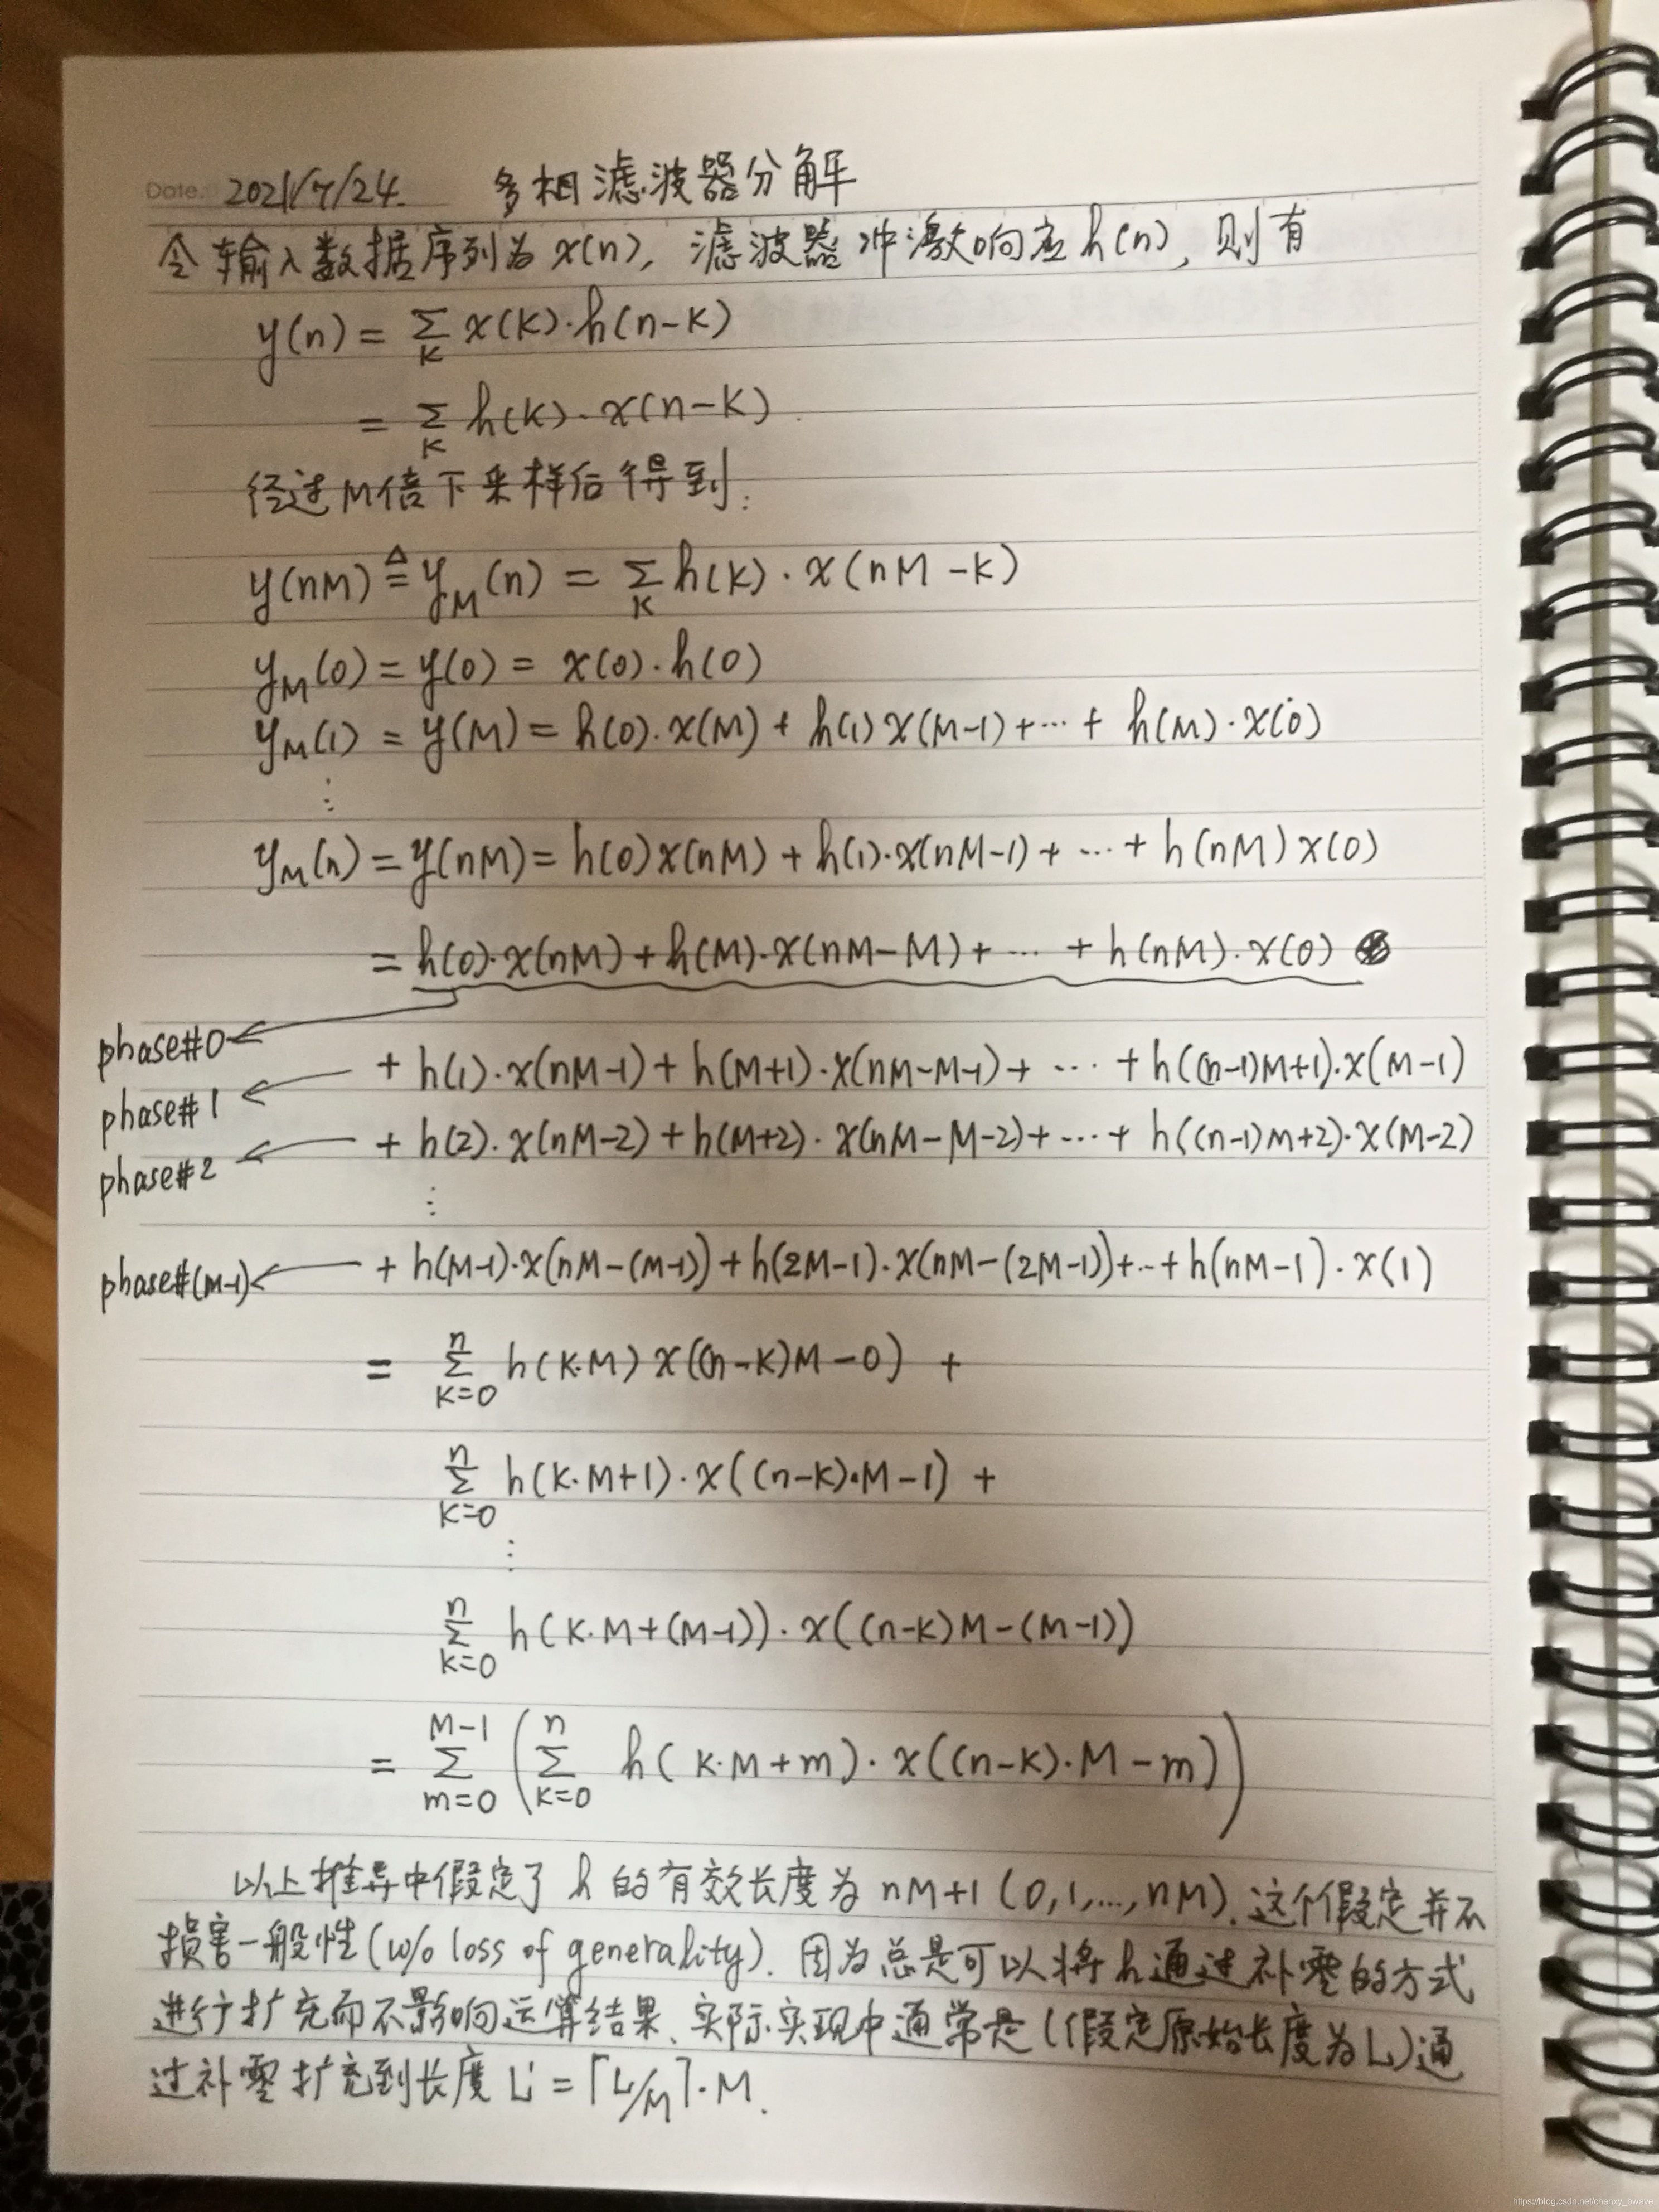 Date. 2021/7/24. 多相滤波器分解
令输入数据序列为 x(n), 滤波器冲激响应 h(n), 则有
y(n) = Σ_K x(K)·h(n-K)
= Σ_K h(K)·x(n-K).
经过M倍下采样后得到:
y(nM) ≜ y_M(n) = Σ_K h(K)·x(nM-K)
y_M(0) = y(0) = x(0)·h(0)
y_M(1) = y(M) = h(0)·x(M) + h(1)x(M-1) + ··· + h(M)·x(0)
⋮
y_M(n) = y(nM) = h(0)x(nM) + h(1)·x(nM-1) + ··· + h(nM)x(0)
= h(0)·x(nM) + h(M)·x(nM-M) + ··· + h(nM)·x(0)
phase#0
+ h(1)·x(nM-1) + h(M+1)·x(nM-M-1) + ··· + h((n-1)M+1)·x(M-1)
phase#1
+ h(2)·x(nM-2) + h(M+2)·x(nM-M-2) + ··· + h((n-1)M+2)·x(M-2)
phase#2
⋮
phase#(M-1) + h(M-1)·x(nM-(M-1)) + h(2M-1)·x(nM-(2M-1)) + ·· + h(nM-1)·x(1)
= Σ_{K=0}^{n} h(K·M) x((n-K)M-0) +
Σ_{K=0}^{n} h(K·M+1)·x((n-K)·M-1) +
⋮
Σ_{K=0}^{n} h(K·M+(M-1))·x((n-K)M-(M-1))
= Σ_{m=0}^{M-1} ( Σ_{K=0}^{n} h(K·M+m)·x((n-K)·M-m) )
以上推导中假定了 h 的有效长度为 nM+1 (0,1,...,nM). 这个假定并不
损害一般性 (w/o loss of generality). 因为总是可以将 h 通过补零的方式
进行扩充而不影响运算结果、实际实现中通常是 (假定原始长度为 L) 通
过补零扩充到长度 L' = ⌈L/M⌉·M.
https://blog.csdn.net/chenxy_bwave